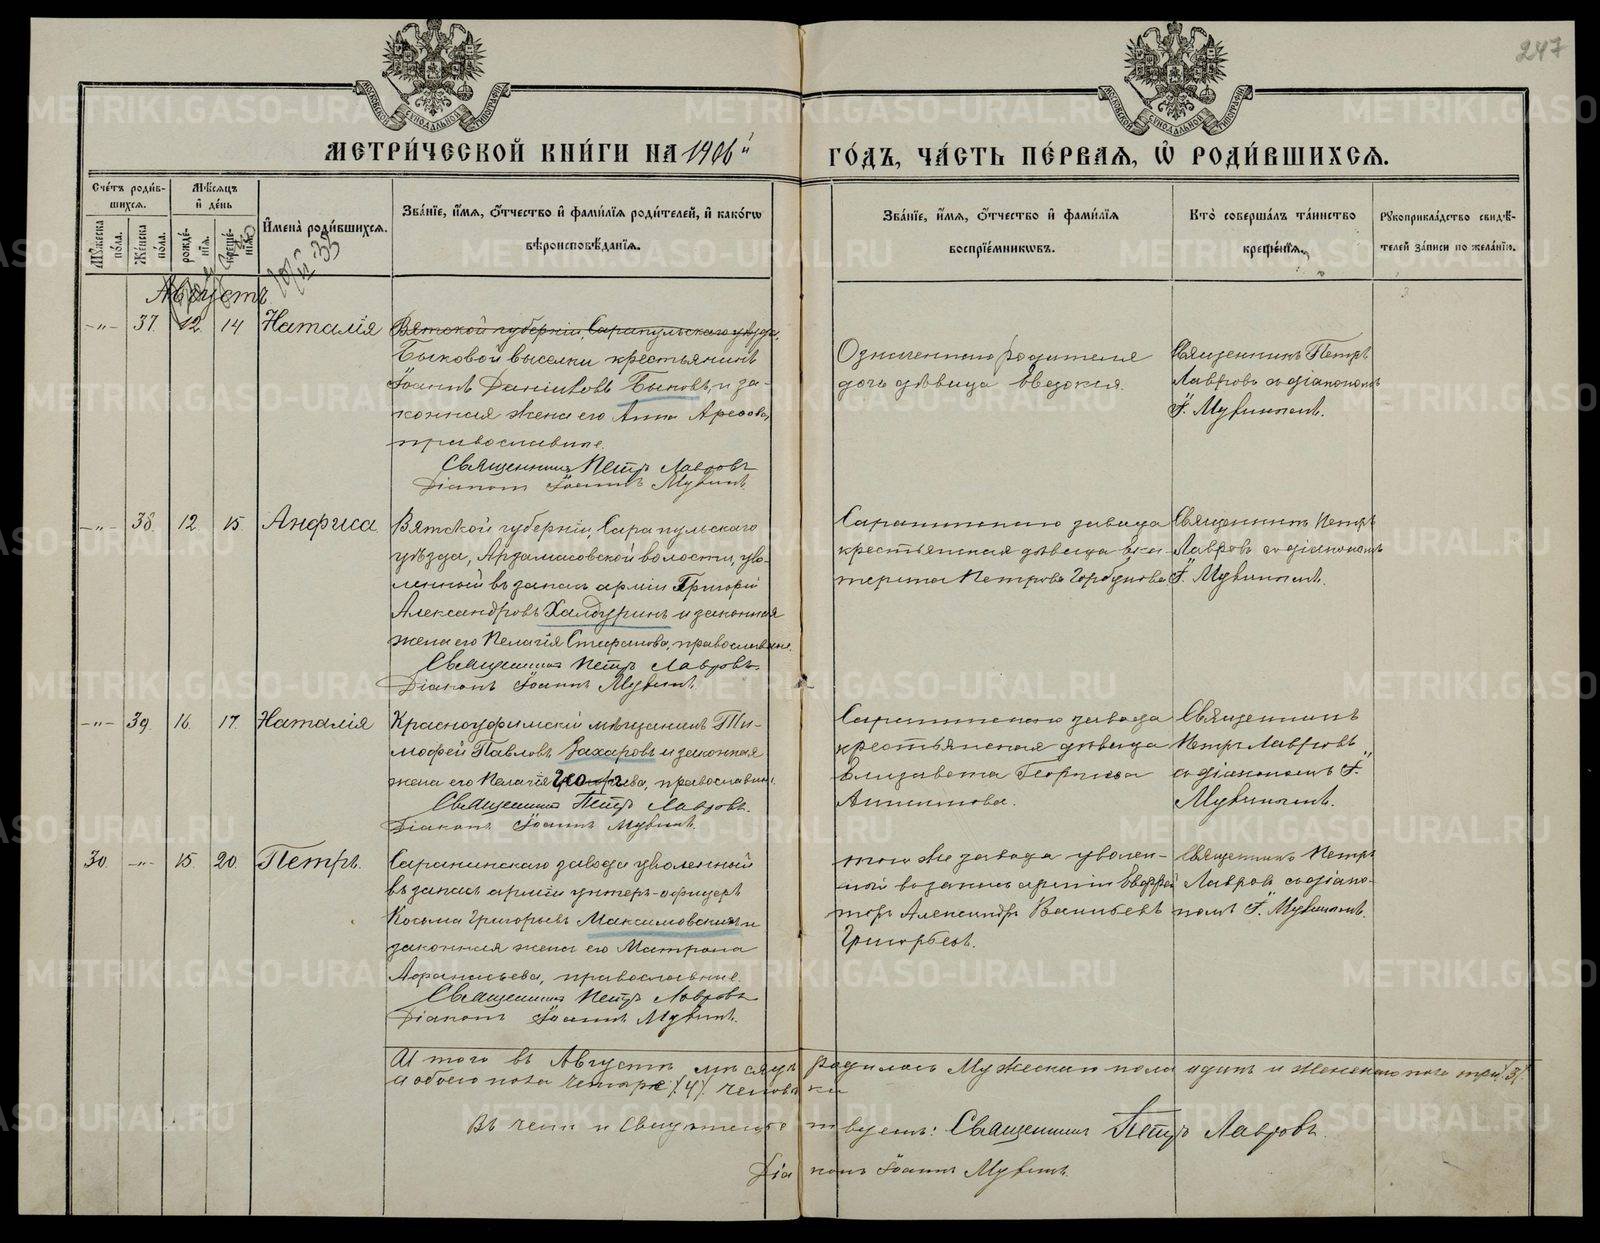 247
МОСКОВСКОЙ СѴНОДАЛЬНОЙ ТИПОГРАФІИ
МОСКОВСКОЙ СѴНОДАЛЬНОЙ ТИПОГРАФІИ
МЕТРИ́ЧЕСКОЙ КНИ́ГИ НА 1906й ГО́ДЪ, ЧА́СТЬ ПЕ́РВАЯ, Ѡ РОДИ́ВШИХСЯ.
Сче́тъ роди́в-
шихся.
Му́жеска по́ла.
Же́нска по́ла.
Мѣ́сяцъ
и де́нь
рожде́-
нїя.
креще́-
нїя.
Имена̀ роди́вшихся.
Зва́нїе, и́мя, о́тчество и фами́лїя роди́телей, и како́гѡ
вѣроисповѣ́данїя.
Зва́нїе, и́мя, о́тчество и фами́лїя
воспрїе́мниковъ.
Кто̀ соверша́лъ та́инство
креще́нїя.
Рукоприкла́дство свидѣ́-
телей за́писи по жела́нїю.
Августъ
-"- 37. 12. 14 Наталія
Вятской губерніи, Сарапульскаго уѣзда,
Быковой выселки крестьянинъ
Іоаннъ Даніиловъ Быковъ, и за-
конная жена его Анна
православные.
Священникъ Петръ Лавровъ
Діаконъ Іоаннъ Мувинъ.
Означеннаго родителя
дочь дѣвица Евдокія.
Священникъ Петръ
Лавровъ съ діакономъ
І. Мувинымъ.
-"- 38. 12. 15 Анфиса
Вятской губерніи, Сарапульскаго
уѣзда, Арзамасовской волости, уво-
ленный въ запасъ арміи Григорій
Александровъ Халтуринъ и законная
жена его Пелагія Стефанова, православные.
Священникъ Петръ Лавровъ.
Діаконъ Іоаннъ Мувинъ.
Саранинскаго завода
крестьянская дѣвица Ека-
терина Петрова Горбунова
Священникъ Петръ
Лавровъ съ діакономъ
І. Мувинымъ.
-"- 39. 16. 17. Наталія
Красноуфимскій мѣщанинъ Ти-
мофей Павловъ Захаровъ и законная
жена его Пелагія православные.
Священникъ Петръ Лавровъ.
Діаконъ Іоаннъ Мувинъ.
Саранинскаго завода
крестьянская дѣвица
Елизавета Георгіева
Священникъ
Петръ Лавровъ
съ діакономъ І.
Мувинымъ.
30. -"- 15 20 Петръ.
Саранинскаго завода уволенный
въ запасъ арміи унтеръ-офицеръ
Косьма Григорьевъ Максимовскихъ и
законная жена его Матрона
Афанасьева, православные.
Священникъ Петръ Лавровъ
Діаконъ Іоаннъ Мувинъ.
того же завода уволен-
ный въ запасъ арміи
Александръ Васильевъ
Григорьевъ.
Священникъ Петръ
Лавровъ съ діако-
номъ І. Мувинымъ.
А того въ Августѣ мѣсяцѣ родилось Мужескаго пола одинъ и женскаго пола три (3).
и обоего пола четыре (4) человѣка
Въ чемъ и свидѣтельствуемъ: Священникъ Петръ Лавровъ.
Діаконъ Іоаннъ Мувинъ.
METRIKI.GASO-URAL.RU